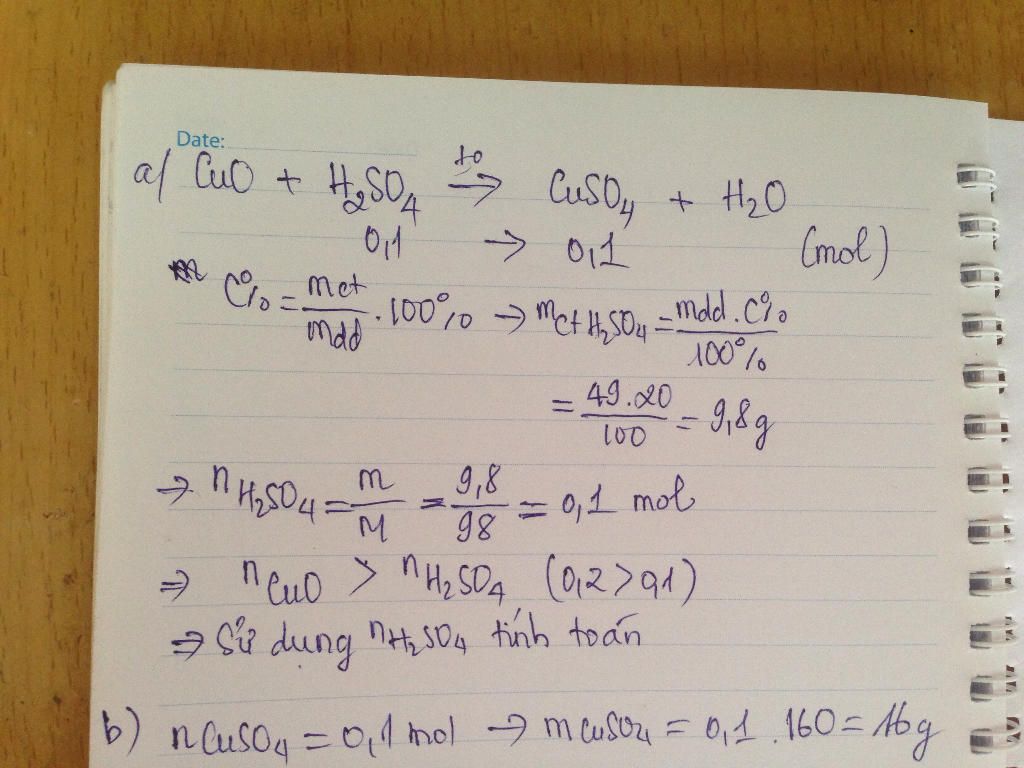 Date:
a/ CuO + H₂SO₄ t° → CuSO₄ + H₂O
0,1 → 0,1 (mol)
C% = mct/mdd . 100% → mct H₂SO₄ = mdd . C%/100%
= 49.20/100 = 9,8g
→ nH₂SO₄ = m/M = 9,8/98 = 0,1 mol
⇒ nCuO > nH₂SO₄ (0,2 > 0,1)
⇒ Sử dụng nH₂SO₄ tính toán
b) nCuSO₄ = 0,1 mol → mCuSO₄ = 0,1 . 160 = 16g